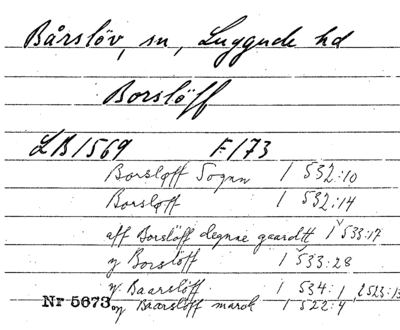 Bårslöv, sn, Luggude hd
Borslöff
LB 1569 F 173
Borsloff Sognn 1 532:10
Borsloff 1 532:14
aff Borslöff degnne gaardtt 1 533:17
y Borslöff 1 533:28
y. Baarslöff 1 534:1, 2 523:13
Nr 5673 y Baarslöff marck 1 522:4